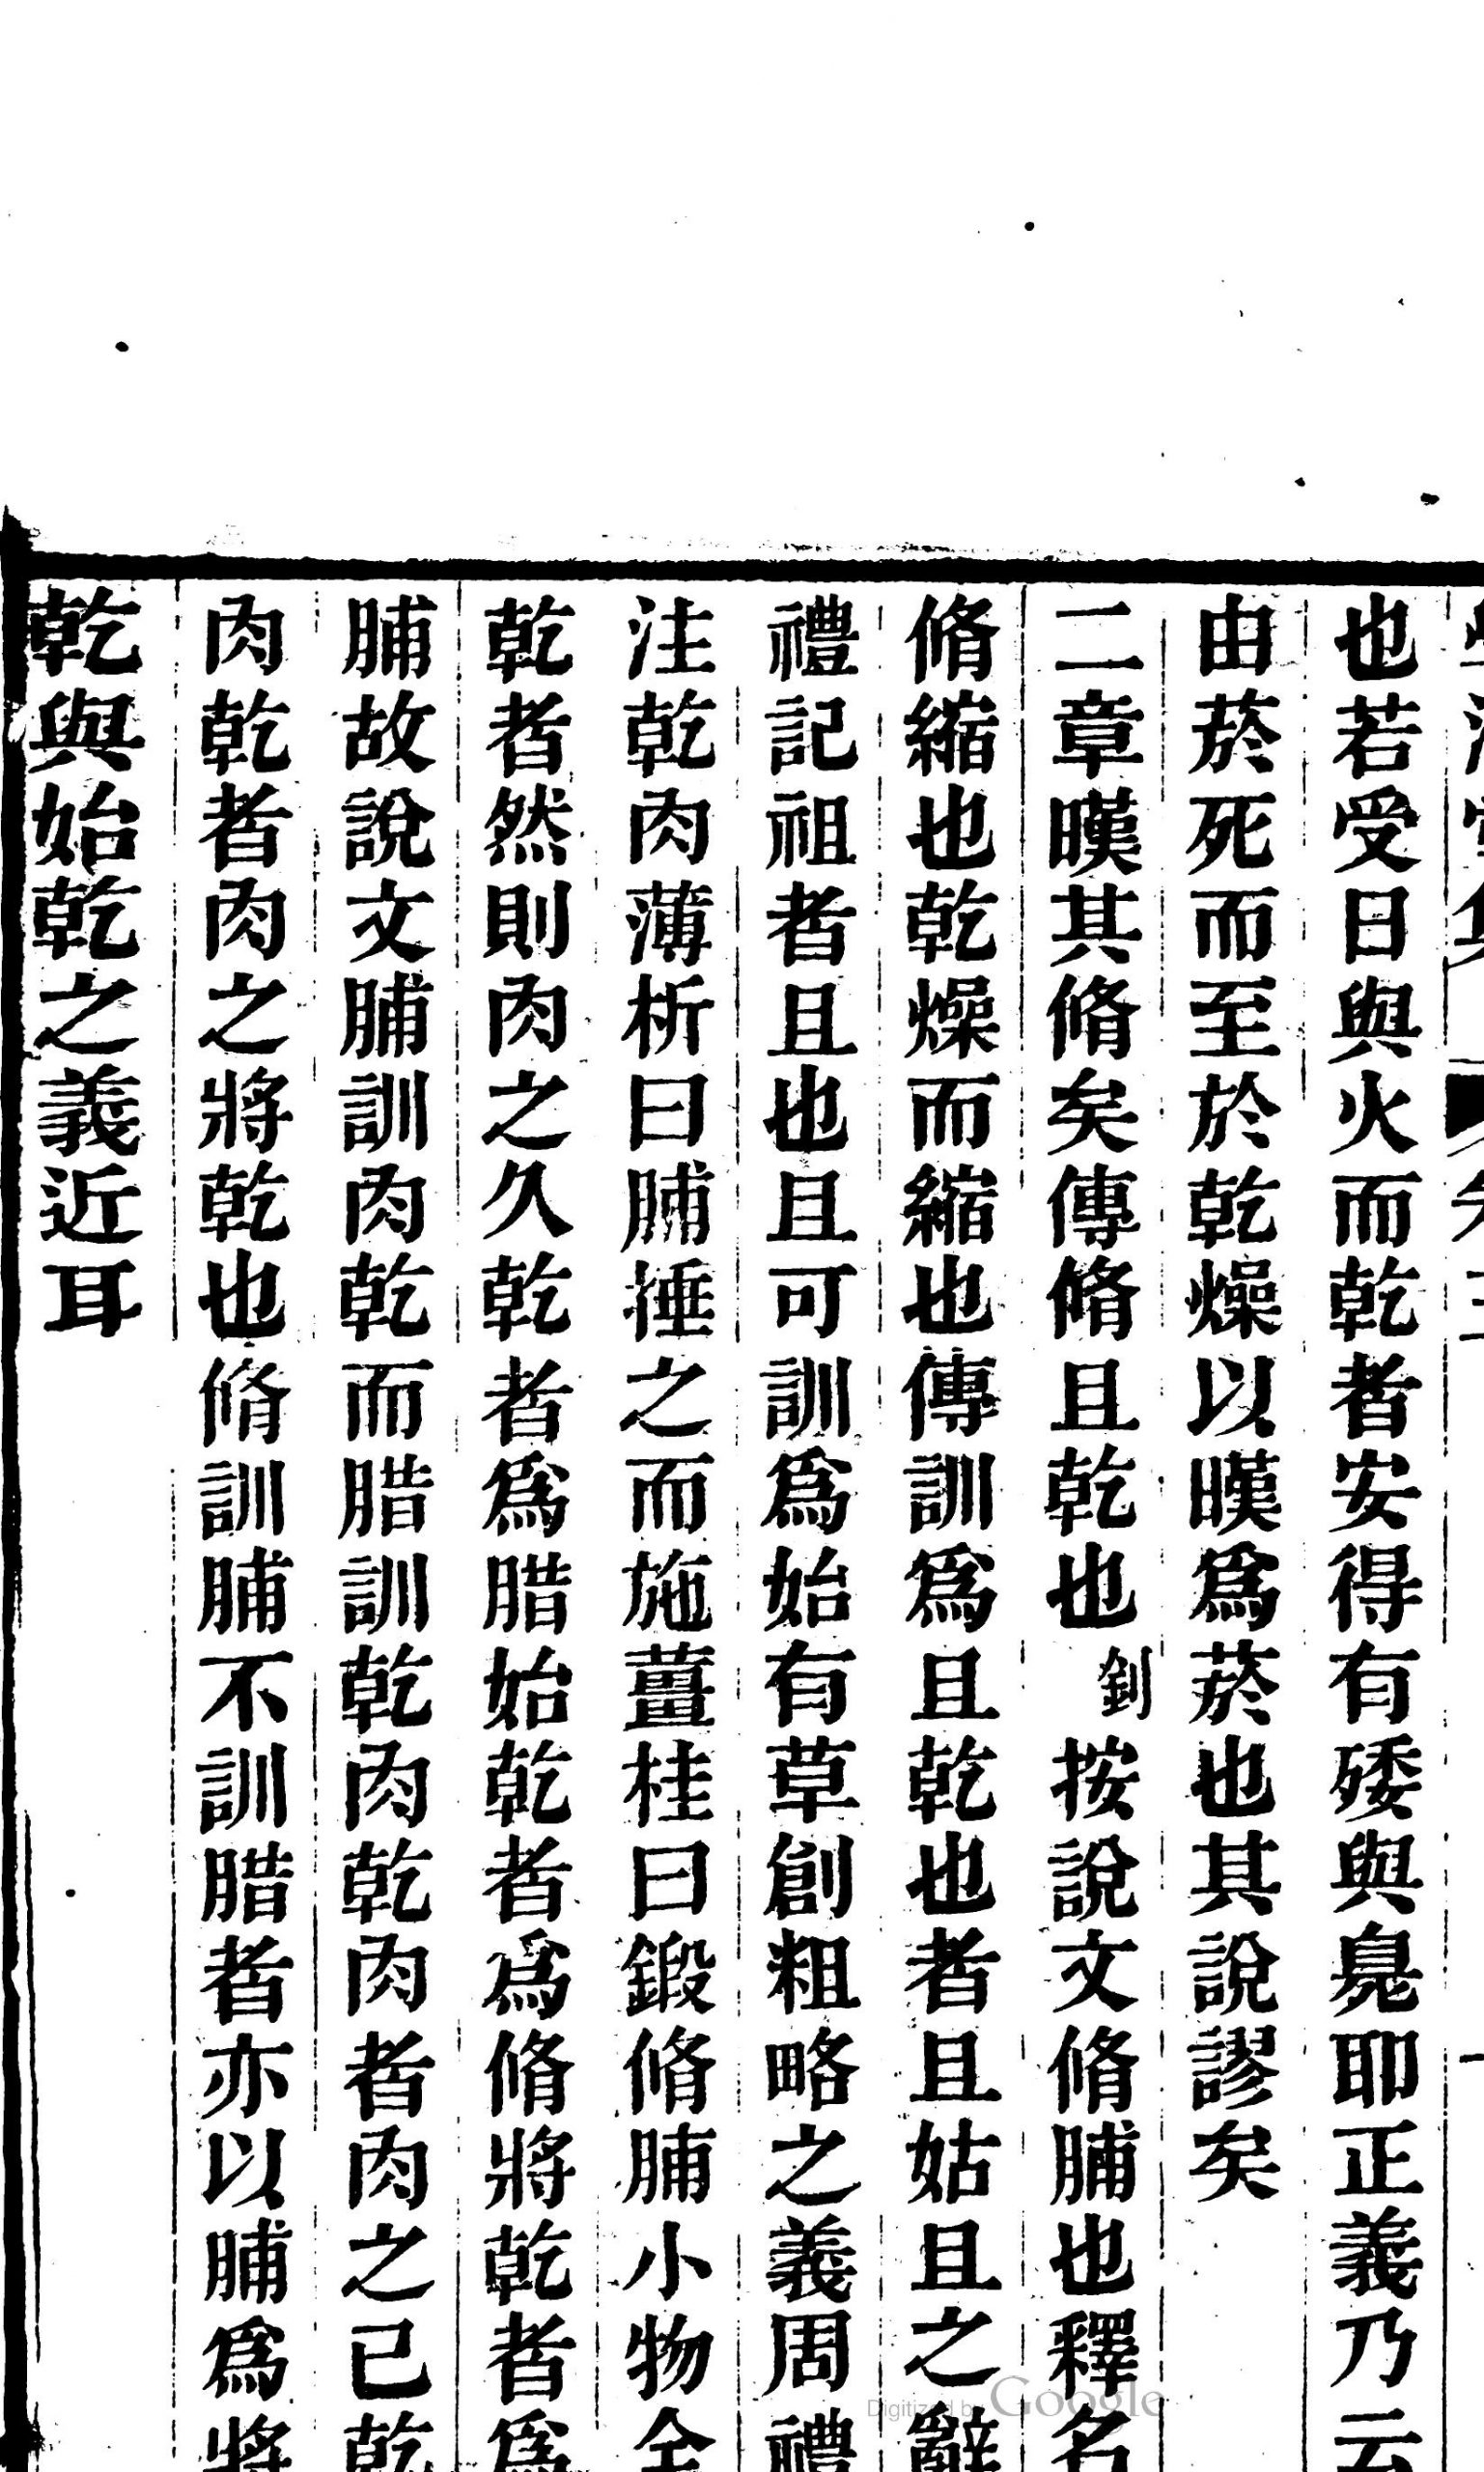 也若受日與火而乾者安得有矮與鳧耶正義乃云
由菸死而至於乾燥以暵爲菸也其說謬矣
二章暵其脩矣傳脩且乾也釗按說文脩脯也釋名
脩縮也乾燥而縮也傳訓爲且乾也者且姑且之辭
禮記祖者且也且可訓爲始有草創粗略之義周禮
注乾肉薄析曰脯捶之而施薑桂曰鍛脩脯小物全
乾者然則肉之久乾者爲腊始乾者爲脩將乾者爲
脯故說文脯訓肉乾而腊訓乾肉乾肉者肉之已乾
肉乾者肉之將乾也脩訓脯不訓腊者亦以脯爲將
乾與始乾之義近耳
Digitized by Google